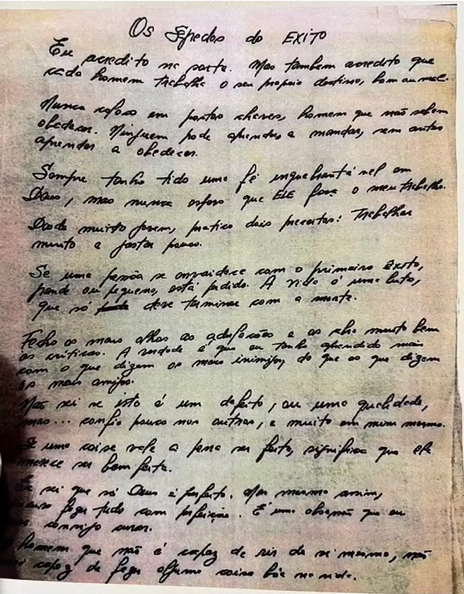 Os Segredos do EXITO
Eu acredito na sorte. Mas também acredito que
cada homem trabalha o seu proprio destino, bom ou mal.
Nunca coloco em postos chaves, homem que não sabem
obedecer. Ninguem pode aprender a mandar, sem antes
aprender a obedecer.
Sempre tenho tido uma fé inquebrantável em
Deus, mas nunca espero que ELE faça o meu trabalho.
Desde muito jovem, pratico dois preceitos: Trabalhar
muito e gastar pouco.
Se uma pessoa se envaidece com o primeiro êxito,
grande ou pequeno, está perdido. A vida é uma luta,
que só deve terminar com a morte.
Fecho os meus olhos as adulações e os abro muito bem
as criticas. A verdade é que eu tenho aprendido mais
com o que dizem os meus inimigos, do que os que dizem
os meus amigos.
Não sei se isto é um defeito, ou uma qualidade,
mas... confio pouco nos outros, e muito em mim mesmo.
Se uma coisa vale a pena ser feita, significa que ela
merece ser bem feita.
sei que só Deus é perfeito. Mas mesmo assim,
fazer tudo com perfeição. É uma obsessão que eu
consigo curar.
homem que não é capaz de rir de si mesmo, não
capaz de fazer alguma coisa boa na vida.